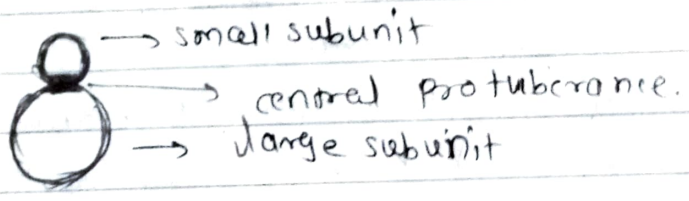 small subunit
central protuberance.
large subunit